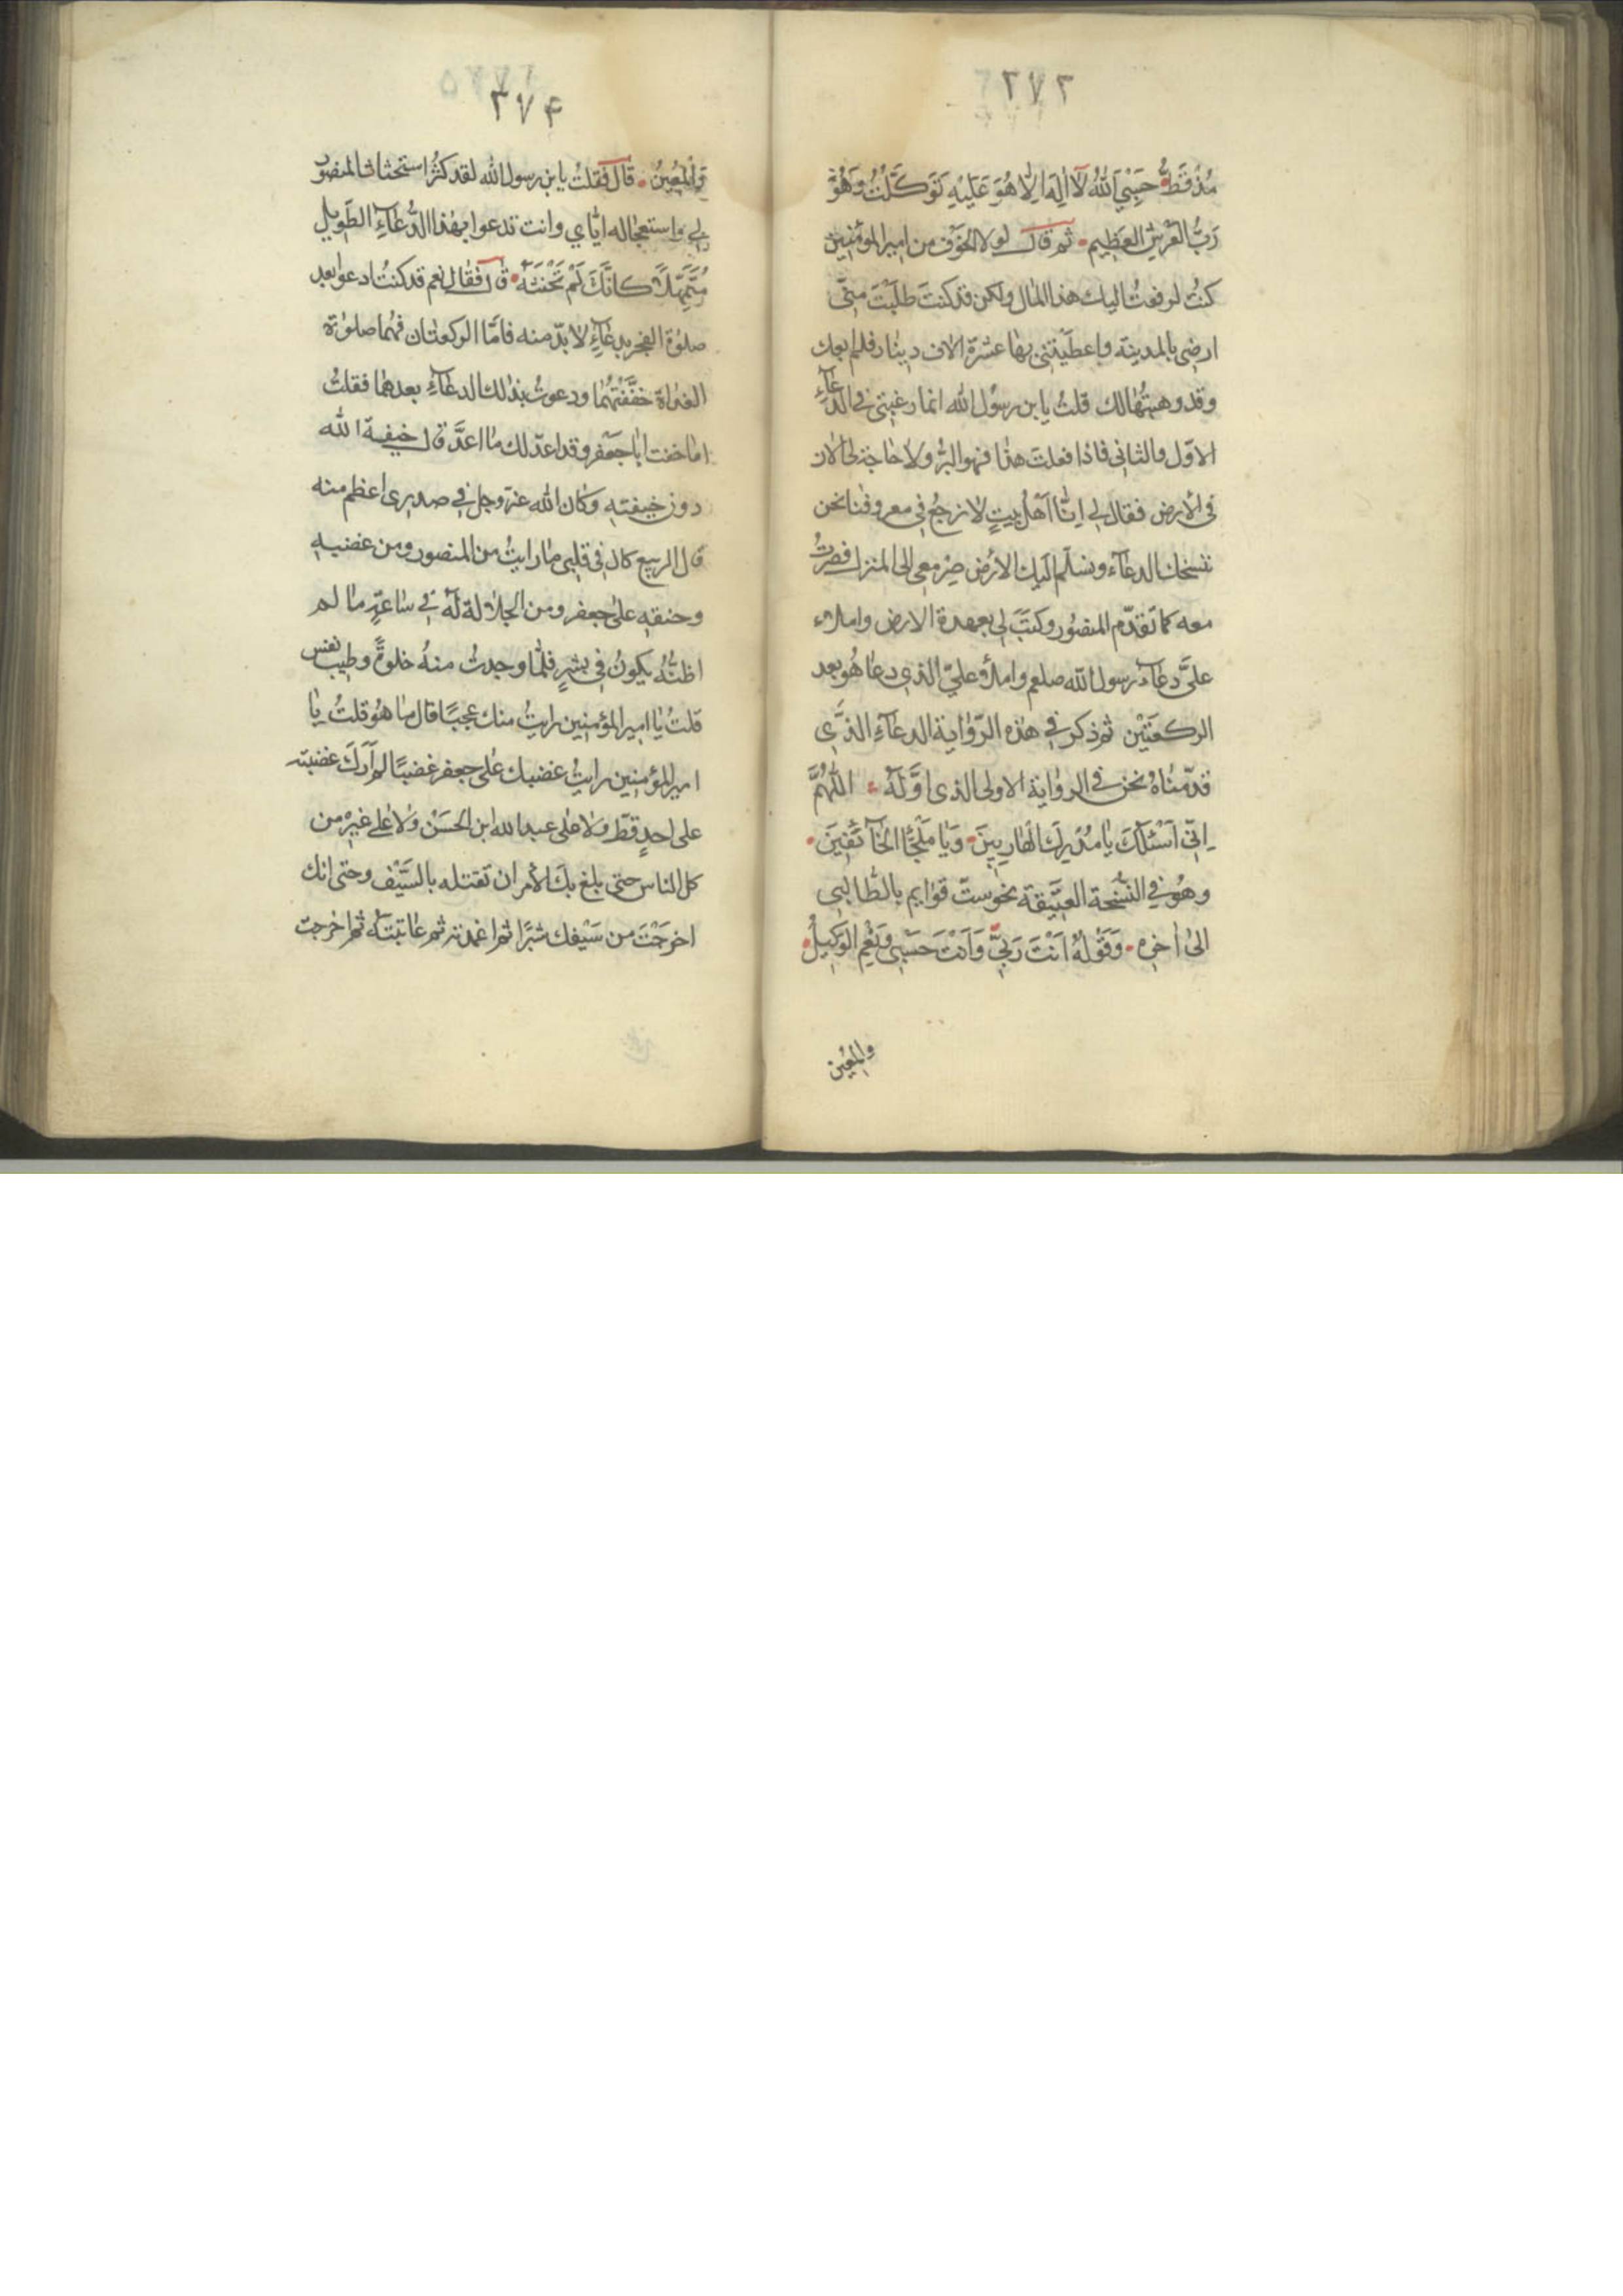 ٢٧٣
مُذْ قَطُّ حَسْبِيَ اللهُ لَآ اِلٰهَ اِلَّا هُوَ عَلَيْهِ تَوَكَّلْتُ وَهُوَ
رَبُّ الْعَرْشِ الْعَظِيمِ ثم قال لولا الخَوْف من امير المؤمنين
كنتُ لدفعتُ اليك هذا المال ولكن قد كنتَ طلبْتَ منّى
ارضى بالمدينة واعطيْتنى بها عشرة الاف دينار فلم ابعك
وقد وهبتُها لك قلتُ يا بن رسول الله انما رغبتى فى الدّعآءِ
الاوّل والثانى فاذا فعلتَ هذا فهو البرُّ ولا حاجة لى الان
فى الأرض فقال لى اِنّا اَهْلُ بيتٍ لا نرجعُ فى معروفنا نحن
ننسخك الدعآء ونسلّم اليك الأرْض صِرْ معى الى المنزل فصِرْتُ
معه كما تقدّم المنصُور وكتبَ لى بعهدة الارض واملاء
علىَّ دعآء رسول الله صلعم واملأ علىّ الذى دعا هُو بعد
الركعتَيْن ثم ذكر فى هذه الرّواية الدعآءَ الذّى
قدّمناهُ نحن فى الرواية الاولى الذى اوّلهُ اللّٰهُمَّ
اِنّى اَسْئلُكَ يا مُدْرِكَ الْهَارِبِينَ وَيَا مَلْجَأَ الْخَآئِفِينَ
وهُو فى النُّسْخة العتَيقة نحو ستّ قوايم بالطّالبى
الىٰ اٰخره وَقَوْلهُ اَنْتَ رَبّىِ وَاَنْتَ حَسْبِى وَنِعْمَ الوَكِيلُ
والمُعِين
٢٧۴
وَالْمُعِينُ قال فقلتُ يا بن رسول الله لقد كثُرَ استحثاث المنصور
لى واستعجاله ايّاي وانت تدعوا بهذا الدُّعآءِ الطَوِيلِ
مُتَمَهّلاً كانَّكَ لَمْ تَخْشَهُ قال فقال نعم قد كنتُ ادعوا بعد
صلوٰة الفجر بدعآءٍ لا بدّ منه فامّا الركعتان فهُما صلوٰة
الغداة خفّفْتُهُما ودعوتُ بذلك الدعآءِ بعدهما فقلتُ
اما خفت ابا جَعْفر وقد اعدّ لك ما اعدَّ قال خيفة الله
دون خيفتهِ وكان الله عزّوجل فى صدرى اعظم منه
قال الربيع كان فى قلبى ما رايتُ من المنصور ومن غضبهِ
وحنقهِ على جعفر ومن الجلالة لهُ فى ساعةٍ ما لم
اظنُّهُ يكونُ فى بشرٍ فلمّا وجدتُ منهُ خلوةً وطيب نفس
قلتُ يا امير المؤمنين رايتُ منك عجبًا قال ما هُو قلتُ يا
امير المؤمنين رايتُ غضبك على جعفر غضبًا لم اَرَكَ غضبته
على احدٍ قطّ ولا على عبد الله ابن الحسَنْ ولا على غيرْ من
كل الناس حتى بلغ بكَ الأمر ان تقتله بالسَّيْف وحتى انك
اخرجْتَ من سَيْفك شبرًا ثم اغمدته ثم عاتبتهُ ثم اخرجت